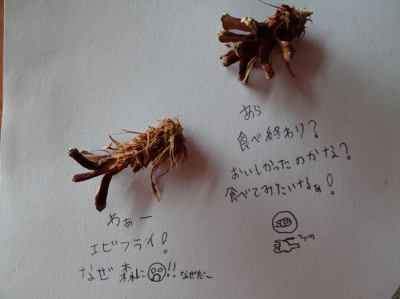 あら
食べ終わり?
おいしかったのかな?
食べてみたいなぁ!
わぁー
エビフライ!
なぜ 森に!! なぜだ〜